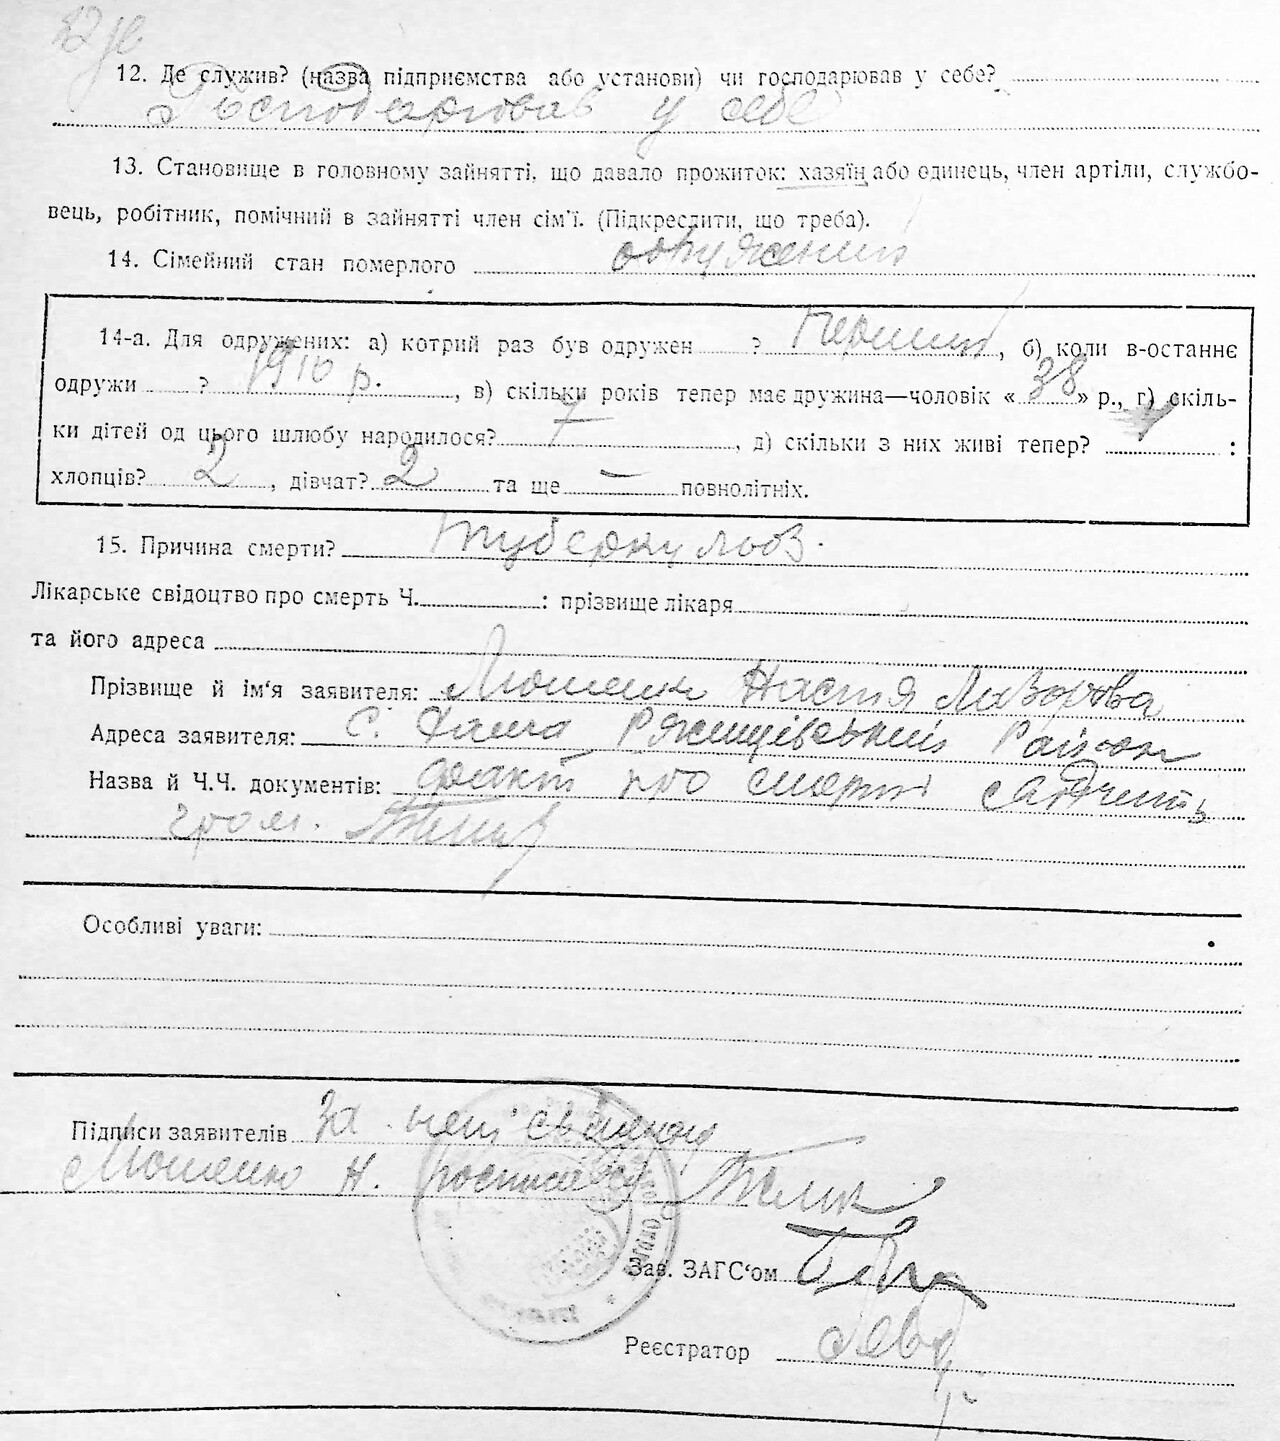 12. Де служив? (назва підприємства або установи) чи господарював у себе?
Господарював у себе
13. Становище в головному зайнятті, що давало прожиток: хазяїн або одинець, член артіли, службо-
вець, робітник, помічний в зайнятті член сім'ї. (Підкреслити, що треба).
14. Сімейний стан померлого одружений
14-а. Для одружених: а) котрий раз був одружен ? Перший, б) коли в-останнє
одружи ? 1910 р., в) скільки років тепер має дружина—чоловік «38» р., г) скіль-
ки дітей од цього шлюбу народилося? 7, д) скільки з них живі тепер? :
хлопців? 2, дівчат? 2 та ще — повнолітніх.
15. Причина смерти? туберкульоз.
Лікарське свідоцтво про смерть Ч. : прізвище лікаря
та його адреса
Прізвище й ім'я заявителя: Настя
Адреса заявителя: с. Ржищівський Район
Назва й Ч.Ч. документів: факт про смерть
гром.
Особливі уваги:
Підписи заявителів За неписьменну
Н. росписався
Зав. ЗАГС'ом
Реєстратор